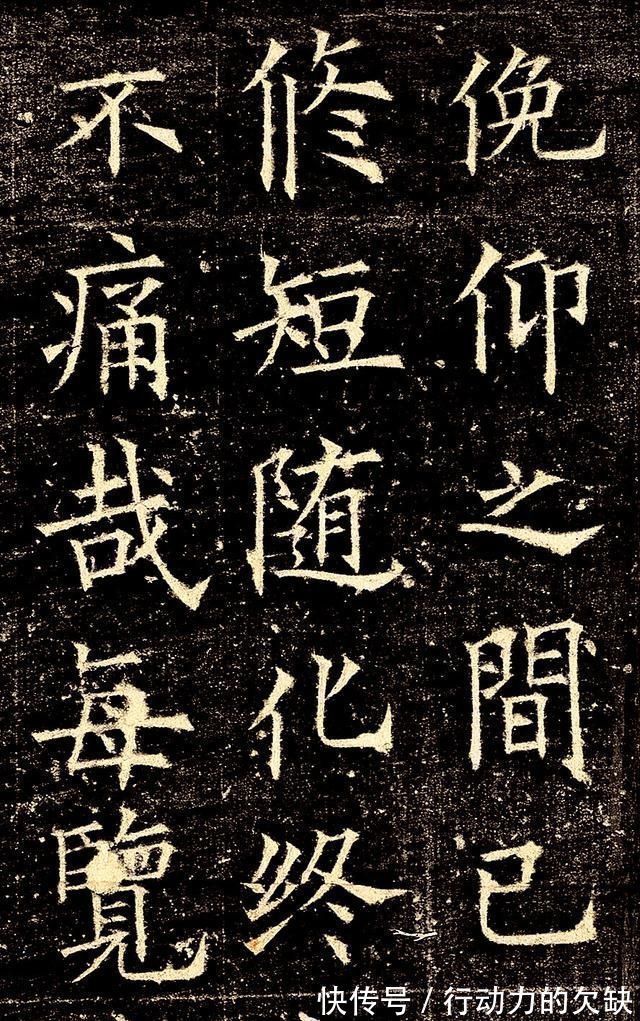 俛仰之間已
修短随化终
不痛哉每覽
快传号 / 行动力的欠缺